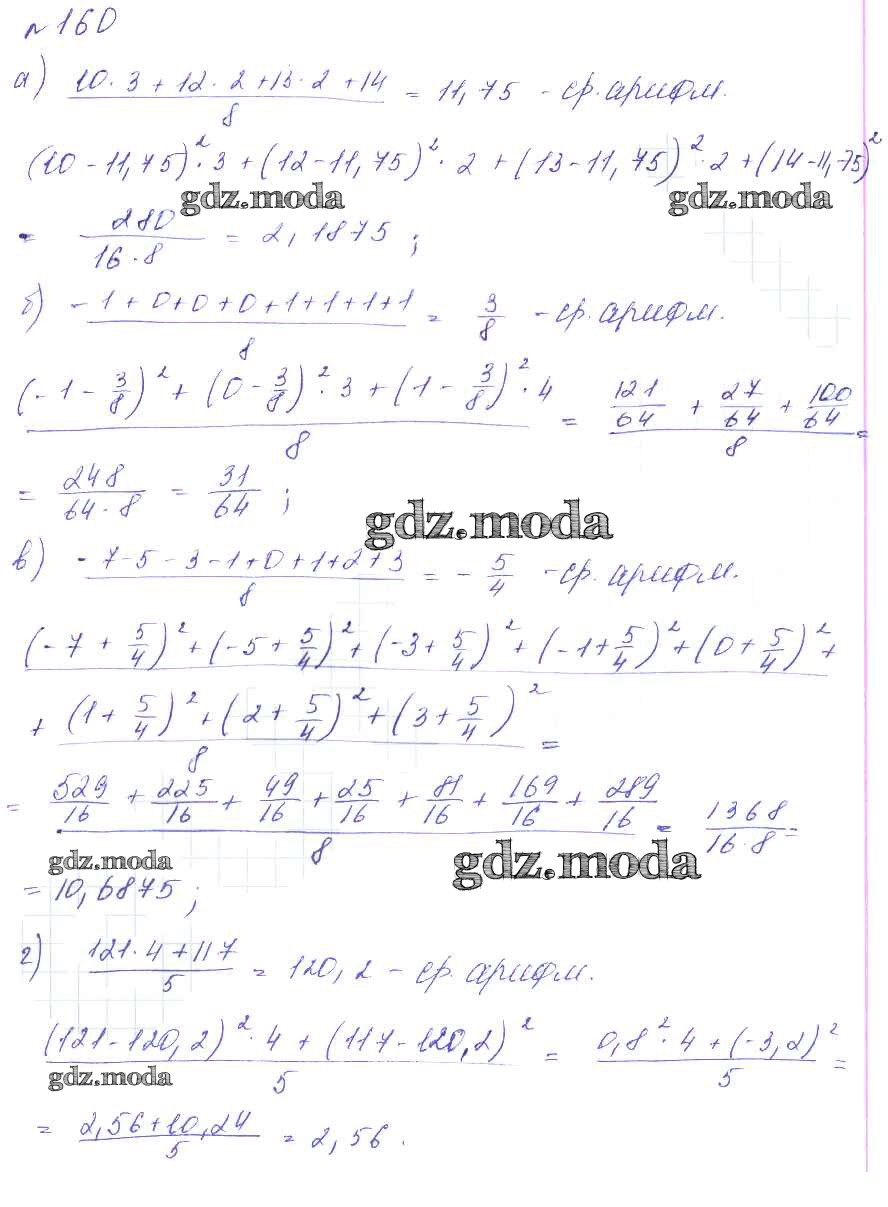 №160
а) (10·3+12·2+13·2+14)/8 = 11,75 - ср. арифм.
(10-11,75)²·3+(12-11,75)²·2+(13-11,75)²·2+(14-11,75)²
gdz.moda gdz.moda
= 280/(16·8) = 2,1875;
б) (-1+0+0+0+1+1+1+1)/8 = 3/8 - ср. арифм.
((-1-3/8)²+(0-3/8)²·3+(1-3/8)²·4)/8 = (121/64+27/64+100/64)/8 =
= 248/(64·8) = 31/64;
gdz.moda
в) (-7-5-3-1+0+1+2+3)/8 = -5/4 - ср. арифм.
(-7+5/4)²+(-5+5/4)²+(-3+5/4)²+(-1+5/4)²+(0+5/4)²+
+(1+5/4)²+(2+5/4)²+(3+5/4)²/8 =
= (529/16+225/16+49/16+25/16+81/16+169/16+289/16)/8 = 1368/(16·8) =
gdz.moda gdz.moda
= 10,6875;
г) (121·4+117)/5 = 120,2 - ср. арифм.
((121-120,2)²·4+(117-120,2)²)/5 = (0,8²·4+(-3,2)²)/5 =
gdz.moda
= (2,56+10,24)/5 = 2,56.